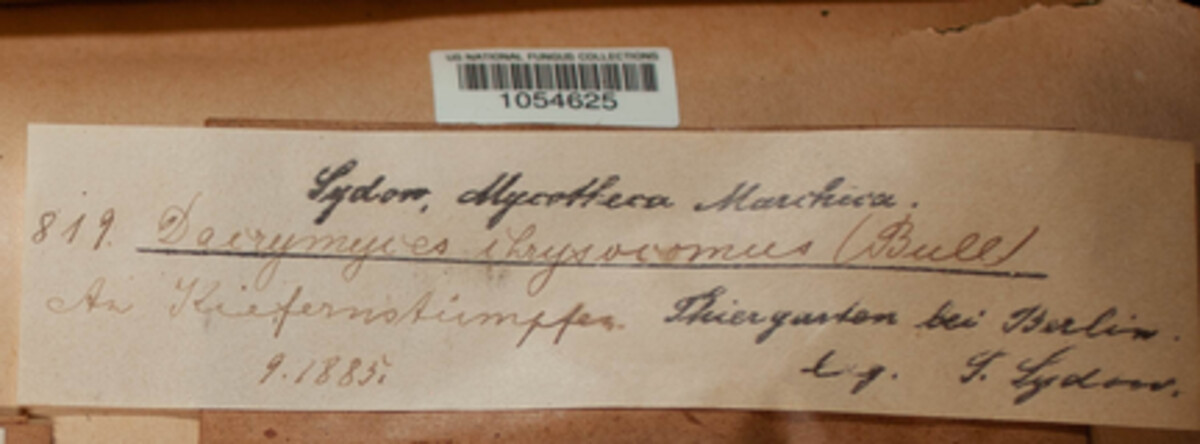 US NATIONAL FUNGUS COLLECTIONS
1054625
Sydow, Mycotheca Marchica.
819. Dacrymyces chrysocomus (Bull)
An Kiefernstümpfen. Thiergarten bei Berlin.
9.1885. leg. P. Sydow.